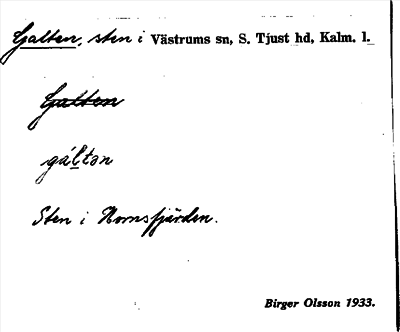 Galten, sten i Västrums sn, S. Tjust hd, Kalm. l.
Galten
gáltən
Sten i Hornsfjärden.
Birger Olsson 1933.